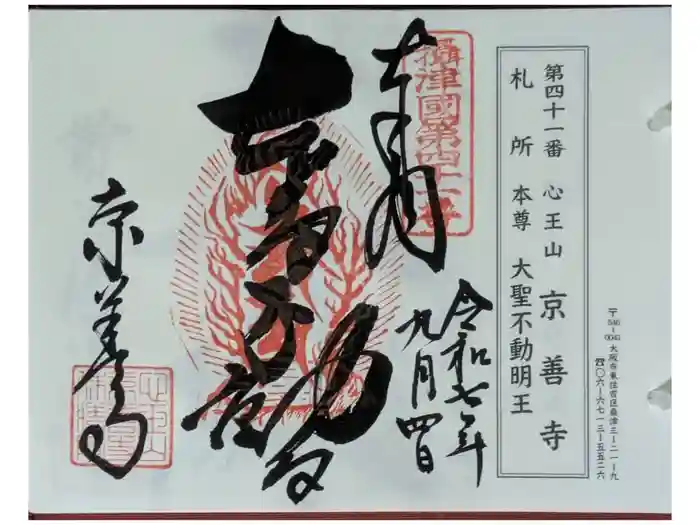 第四十一番 心王山 京善寺
札所 本尊 大聖不動明王
〒546-0041 大阪市東住吉区桑津三-二一-九
☎〇六-六七一三-五五二六
攝津國第四十一番
奉拝
令和七年
九月四日
京善寺